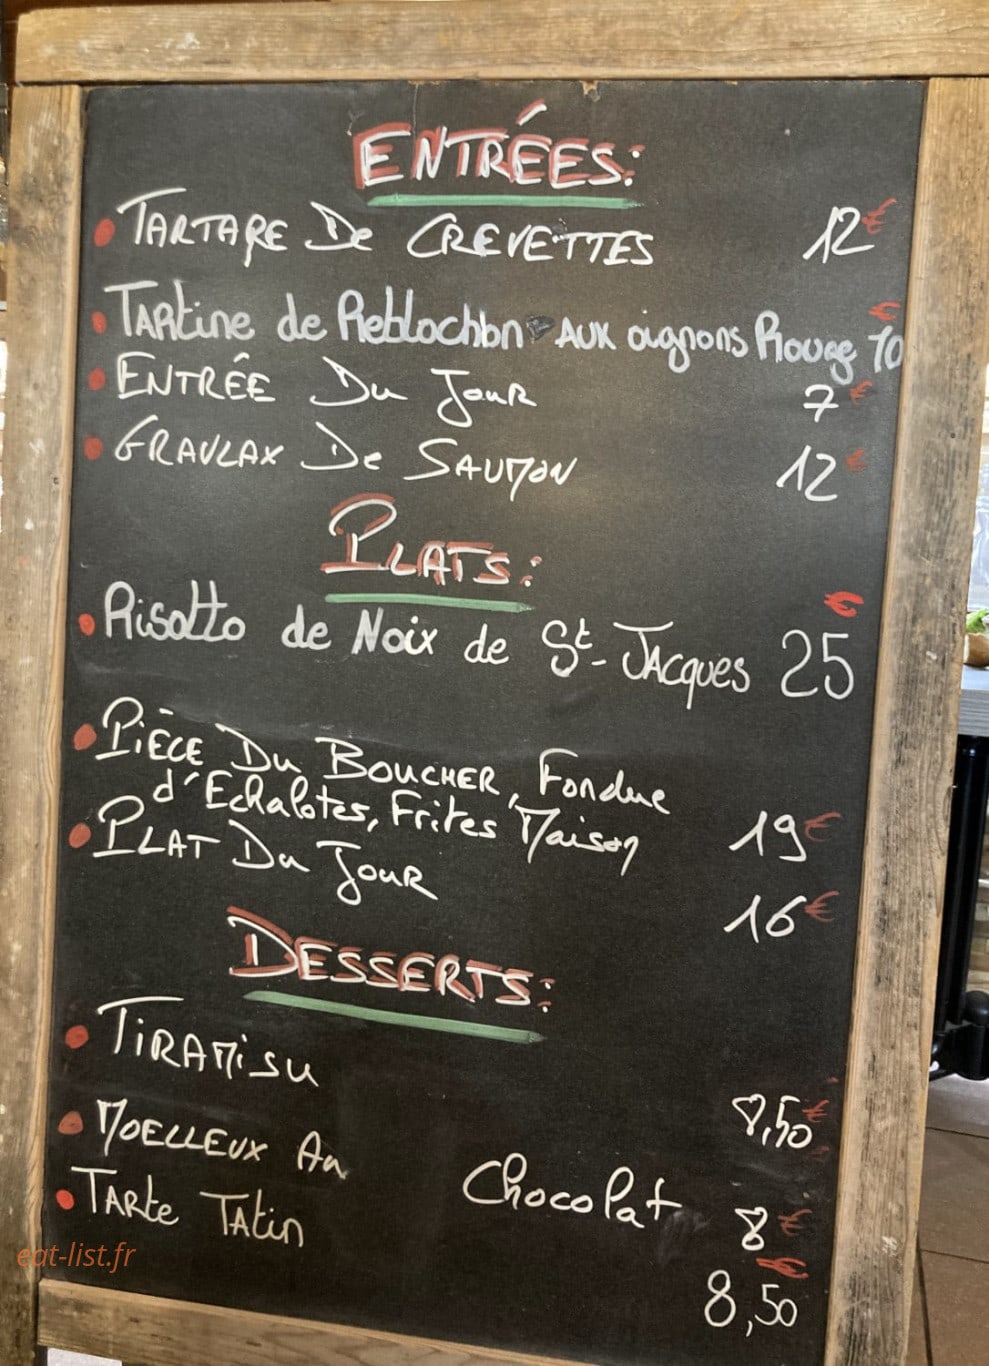 ENTRÉES:
• TARTARE De CREVETTES 12€
• TARtine de Reblochon AUX oignons Rouge 10€
• ENTRÉE Du JouR 7€
• GRAVLAX De SAUMON 12€
PLATS:
• Risotto de Noix de St-JAcques 25€
• PiÈCE Du BOUCHER, Fondue
d'Echalotes, Frites Maison 19€
• PLAT Du JouR 16€
DESSERTS:
• TiRAMiSu 8,50€
• MOELLEUX Au Chocolat 8€
• TARte TAtin 8,50€
eat-list.fr